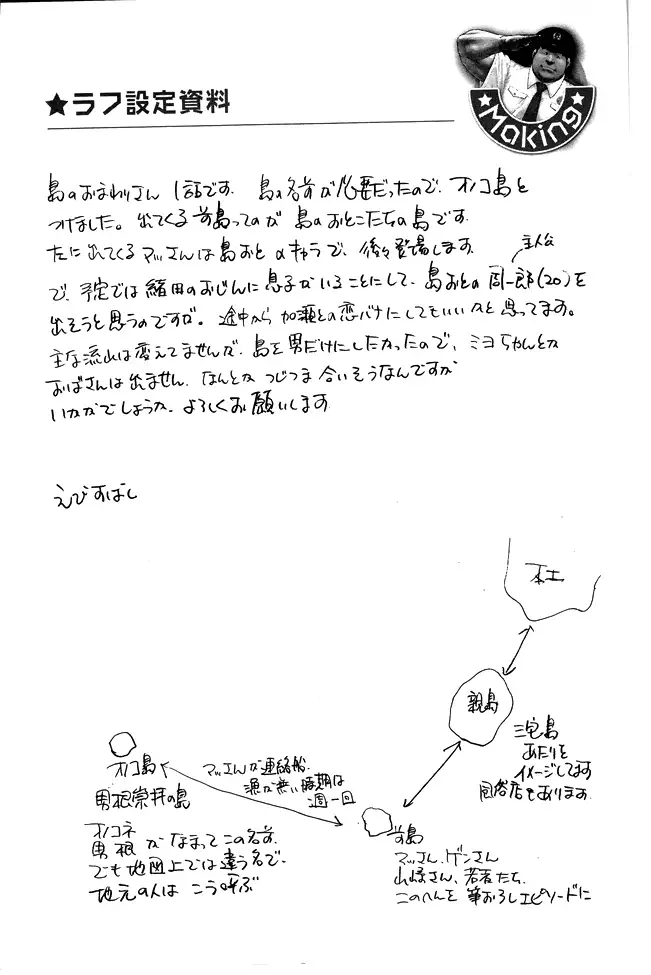 ★ラフ設定資料
★Making★
島のおまわりさん 1話です. 島の名前が必要だったので、オノコ島と
つけました。出てくる前島ってのが 島のおとこたちの島です.
たに出てくるマッさんは島おとのキャラで、後々登場します.
主人公
で、予定では緒田のおじんに息子がいることにして、島おとの周一郎(20)を
出そうと思うのですが。途中から加瀬との恋バナにしてもいいかと思ってます。
主な流れは変えてませんが、島を男だけにしたかったので、ミヨちゃんとか
おばさんは出ません. なんとかつじつま合いそうなんですが
いかがでしょうか. よろしくお願いします.
えびすばし
本土
親島
三宅島
あたりを
イメージしてます
風俗店もあります.
オノコ島
男根崇拝の島
マッさんが連絡船.
漁が無い時期は
週一回
オノコネ
男根がなまってこの名前.
でも地図上では違う名で、
地元の人はこう呼ぶ
前島
マッさん、ゲンさん
山峰さん、若者たち.
このへんを筆おろしエピソードに